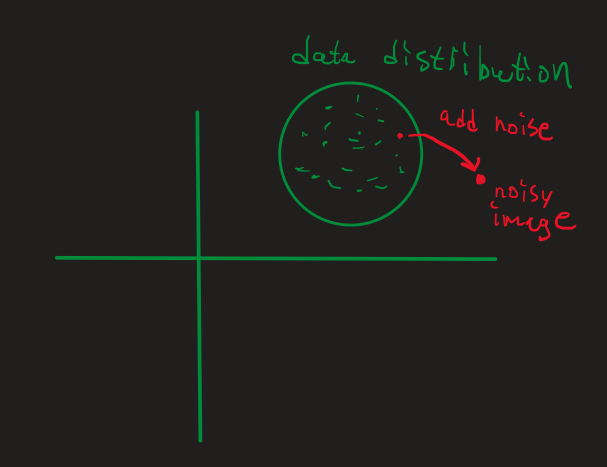 data distribution
add noise
noisy
image